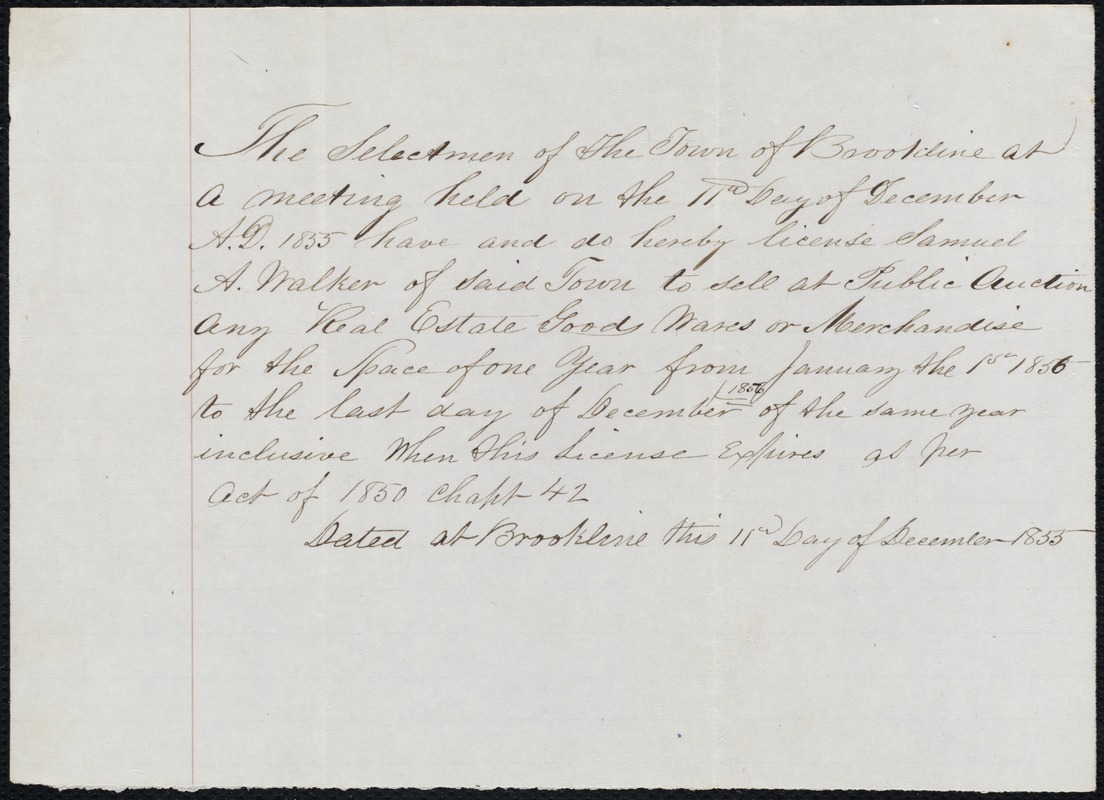 The Selectmen of the Town of Brookline at
a meeting held on the 11th Day of December
A.D. 1855 have and do hereby license Samuel
A. Walker of said Town to sell at Public Auction
any Real Estate Goods Wares or Merchandise
for the Space of one Year from January the 1st 1856
1856
to the last day of December of the same year
inclusive When this License Expires as per
Act of 1850 Chapt 42
Dated at Brookline this 11th Day of December 1855